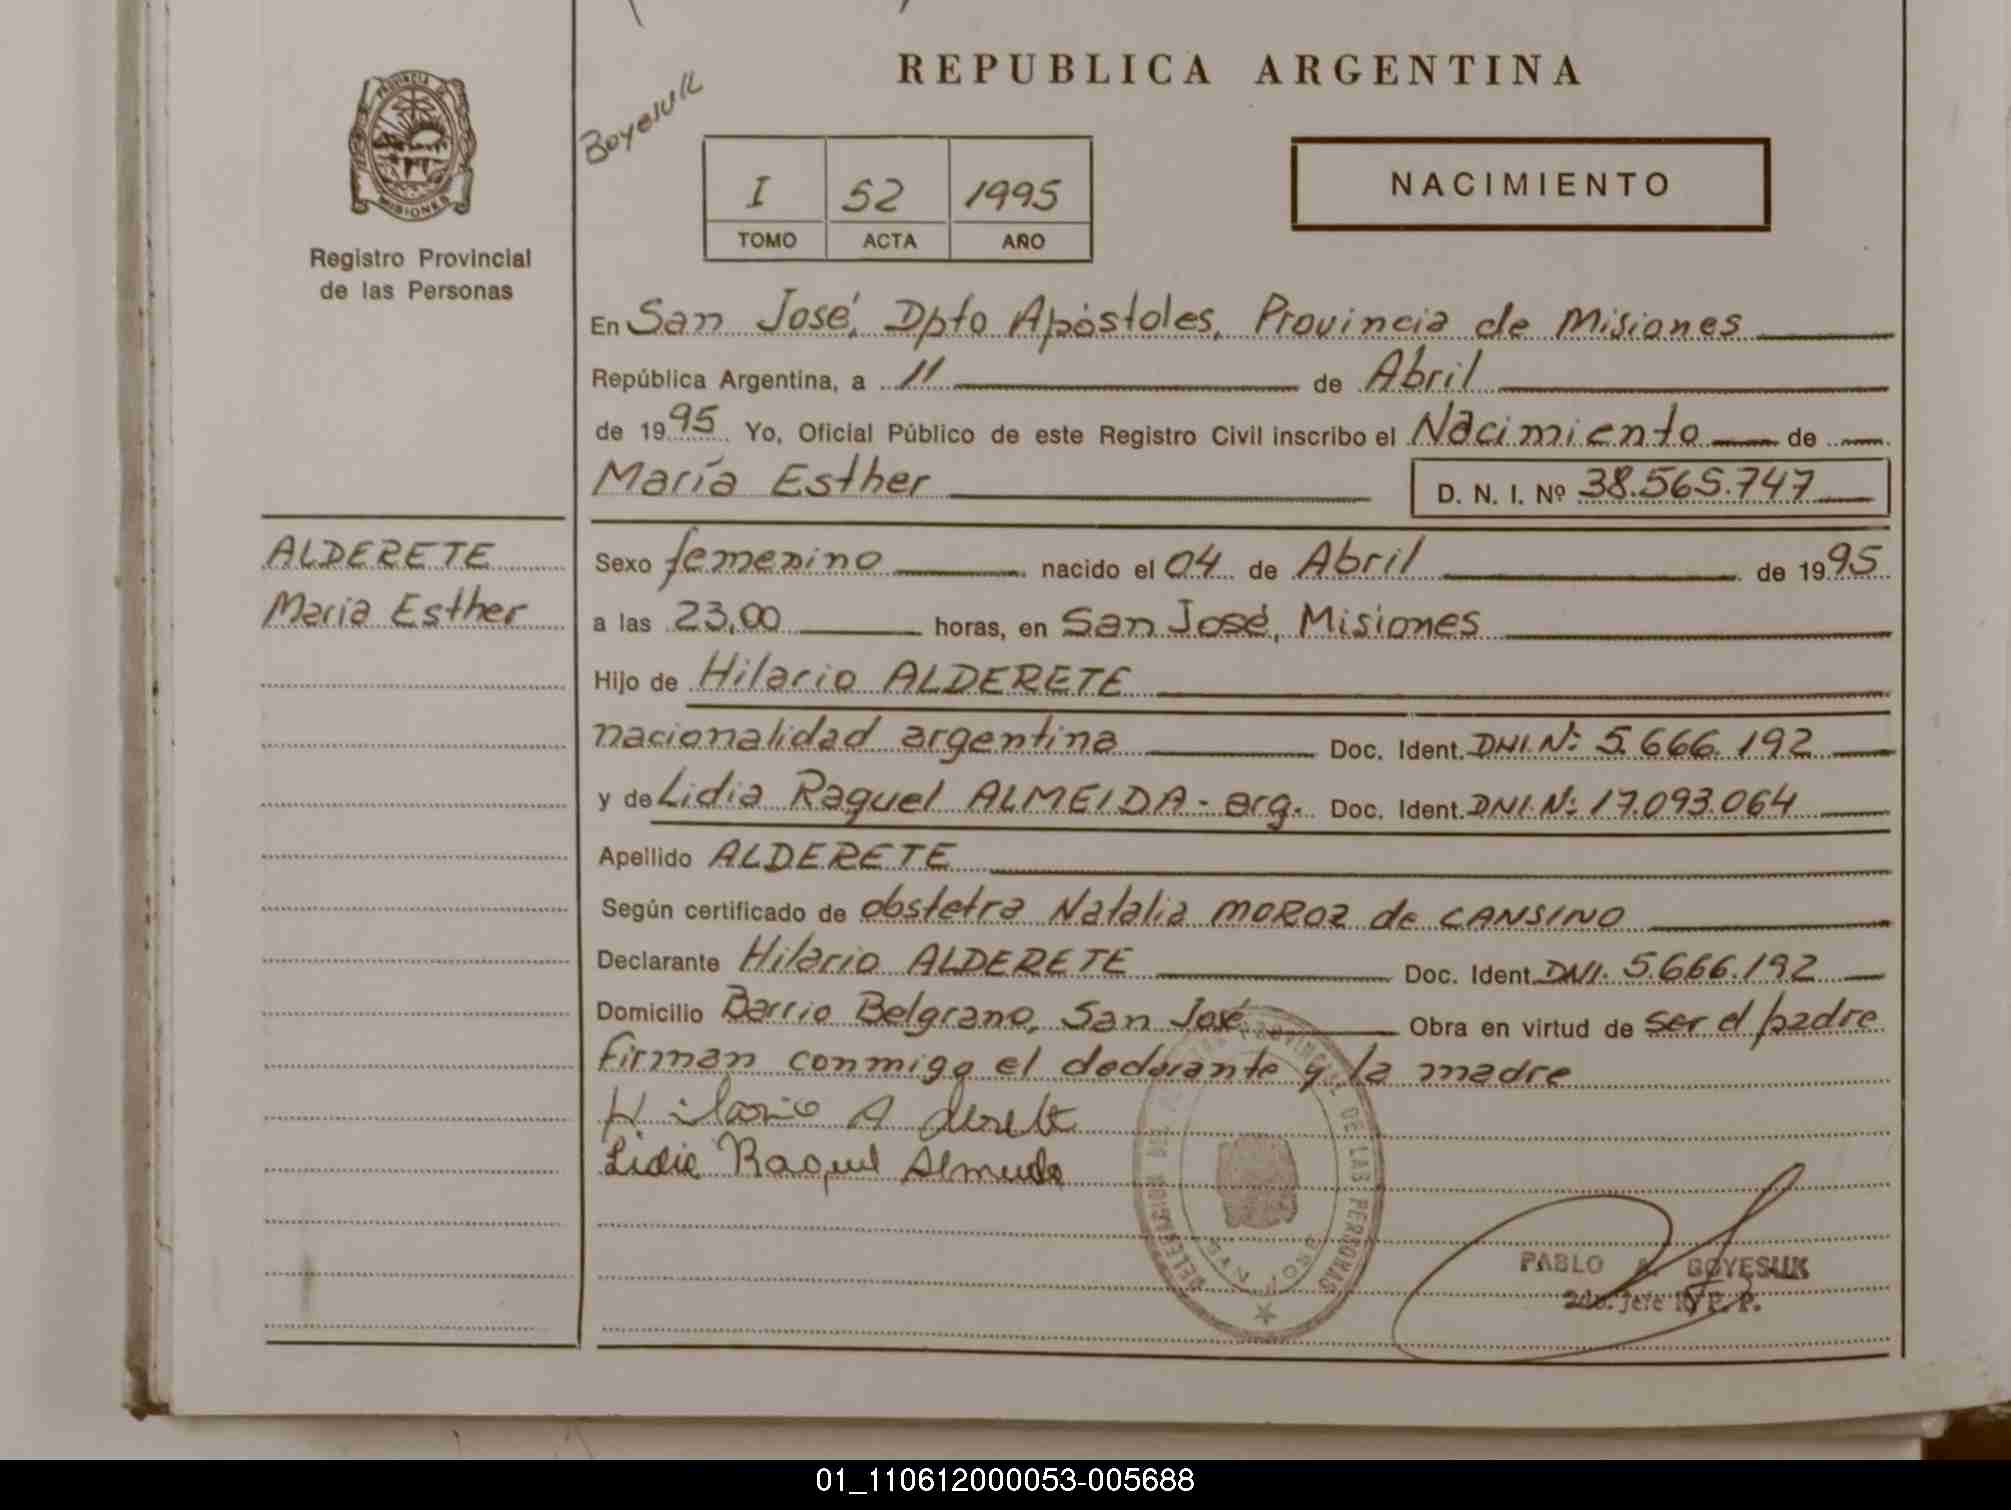 REPUBLICA ARGENTINA
PROVINCIA DE
MISIONES
Registro Provincial
de las Personas
Boyesuk
I 52 1995
TOMO ACTA AÑO
NACIMIENTO
En San José, Dpto Apóstoles, Provincia de Misiones
República Argentina, a 11 de Abril
de 1995 Yo, Oficial Público de este Registro Civil inscribo el Nacimiento de
María Esther D. N. I. Nº 38.565.747
ALDERETE
María Esther
Sexo femenino nacido el 04 de Abril de 1995
a las 23,00 horas, en San José, Misiones
Hijo de Hilario ALDERETE
nacionalidad argentina Doc. Ident. DNI. Nº 5.666.192
y de Lidia Raquel ALMEIDA - arg. Doc. Ident. DNI. Nº 17.093.064
Apellido ALDERETE
Según certificado de obstetra Natalia MOROZ de CANSINO
Declarante Hilario ALDERETE Doc. Ident. DNI. 5.666.192
Domicilio Barrio Belgrano, San José Obra en virtud de ser el padre
Firman conmigo el declarante y la madre
Hilario Alderete
Lidia Raquel Almeida
DELEGACION DEL REGISTRO PROVINCIAL DE LAS PERSONAS
SAN JOSE
PABLO A. BOYESUK
2do. Jefe R. P. P.
01_110612000053-005688